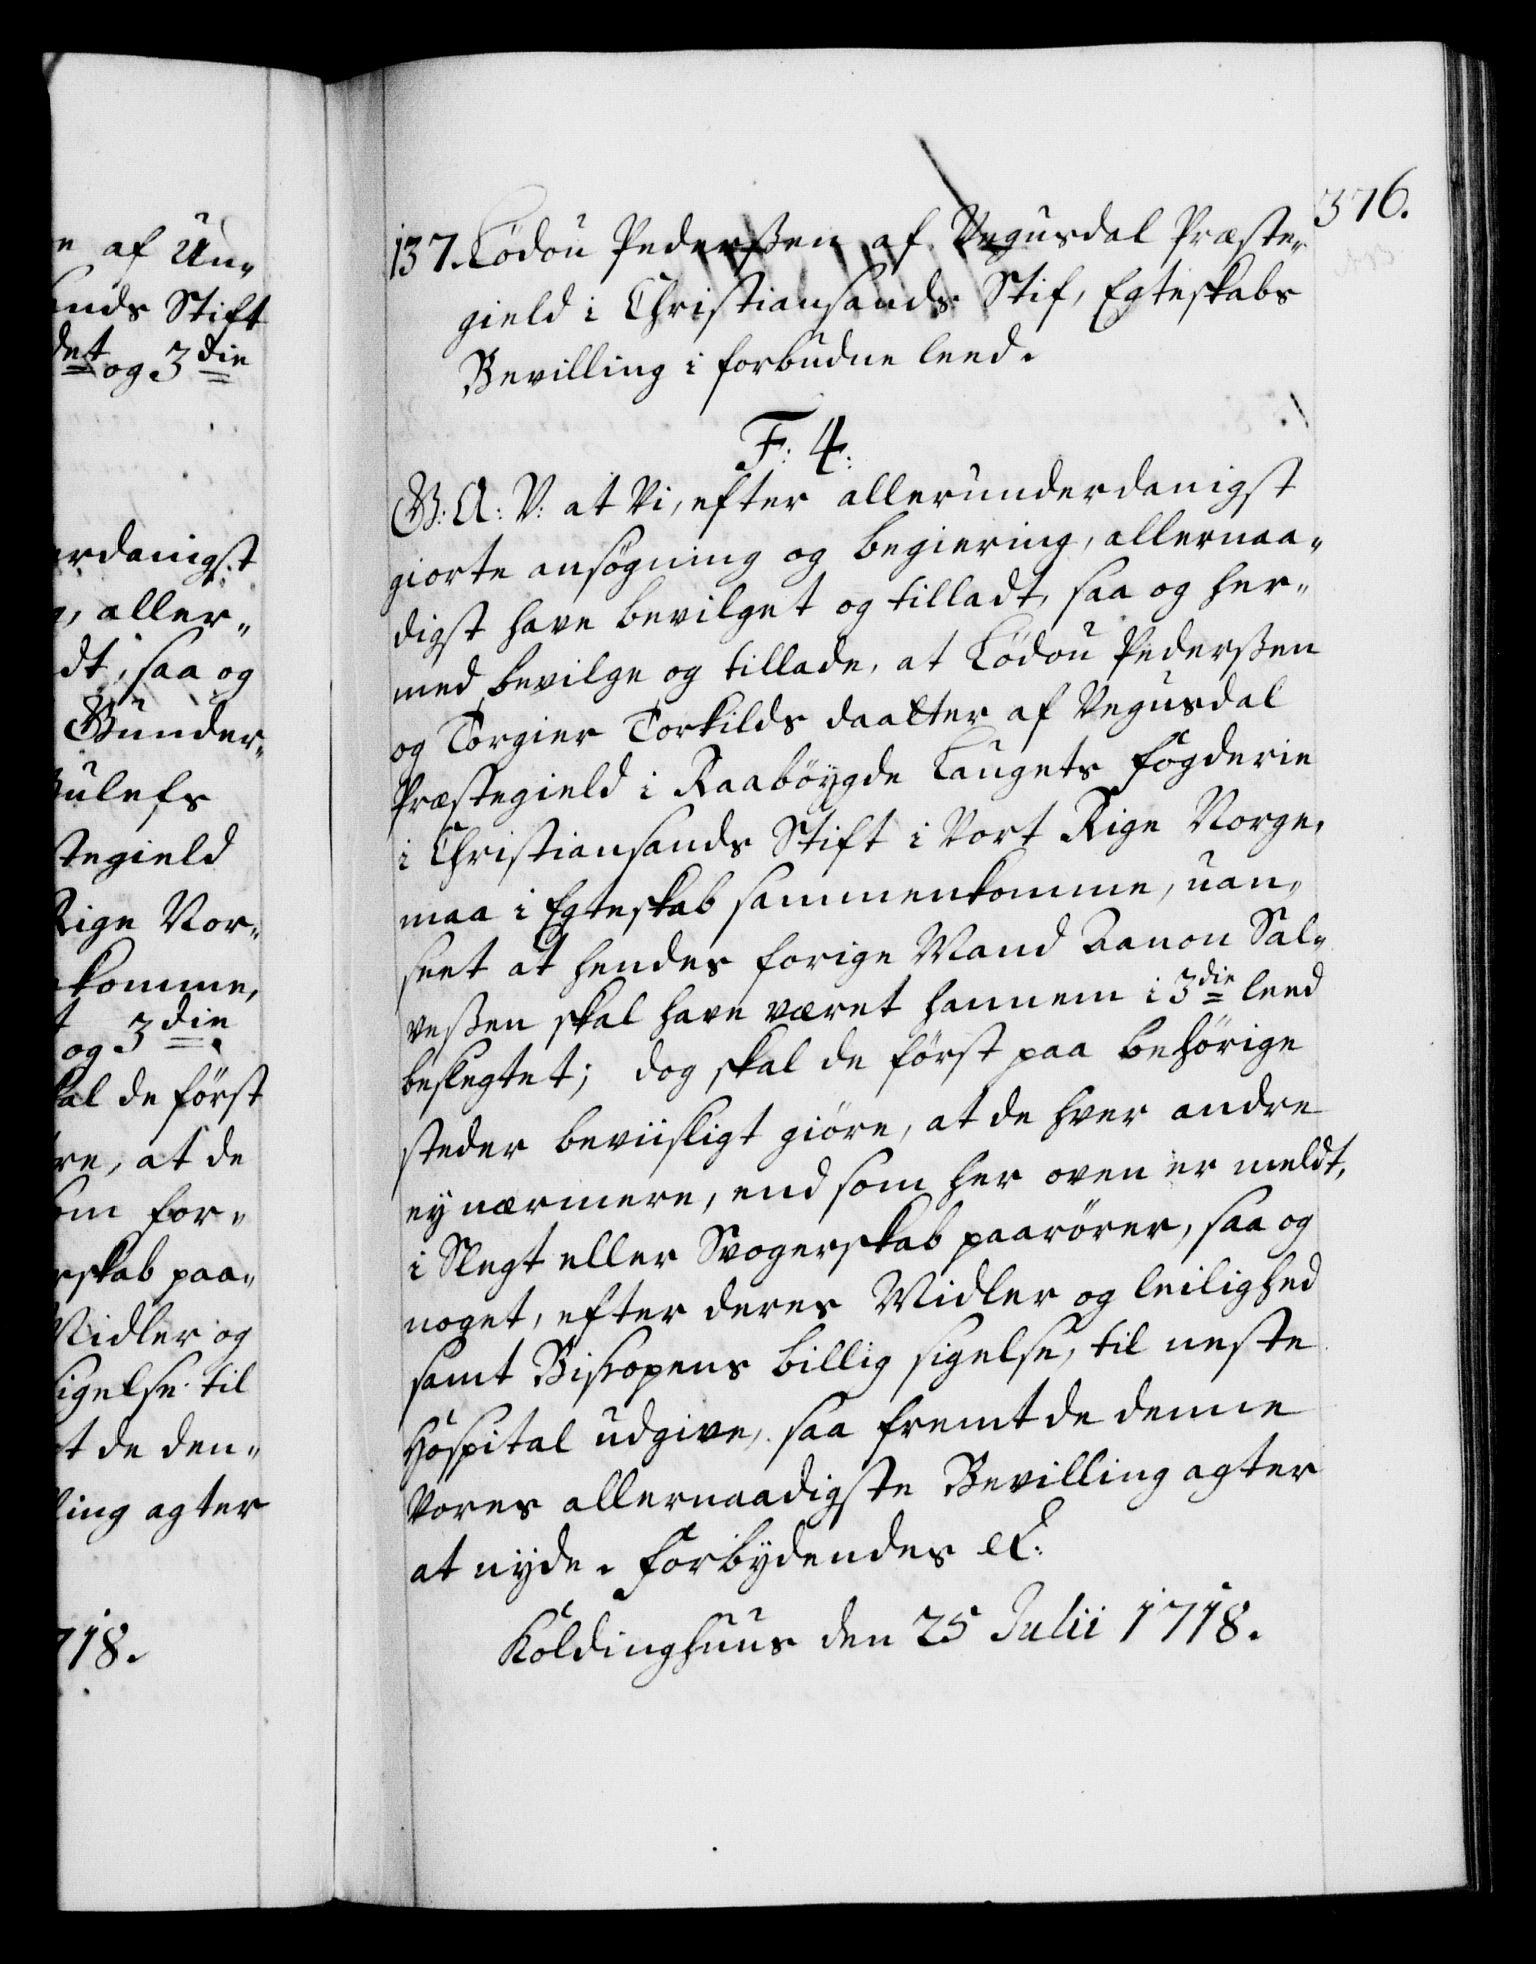 e af Un-
ands Stift
det og 3die
erdanigst
g, aller-
dt, saa og
Gunder-
ulefs
stegield
Rige Nor-
komme,
t og 3die
kal de först
re, at de
om for-
rskab paa-
Midler og
sigelse til
t de den-
ling agter
718.
376.
137. Lödou Pederßen af Vegusdal Præste-
gield i Christiansands Stif, Egteskabs
Bevilling i forbudne leed.
F: 4:
G: A: V: at Vi, efter allerunderdanigst
giorte ansögning og begiering, allernaa-
digst have bevilget og tilladt, saa og her-
med bevilge og tillade, at Lödou Pederßen
og Torgier Torkilds daatter af Vegusdal
Præstegield i Raaböygde Laugets fogderie
i Christiansands Stift i Vort Rige Norge,
maa i Egteskab sammenkomme, uan-
seet at hendes forige Mand Aanon Sal-
veßen skal have været hannem i 3die leed
beslegtet; dog skal de först paa behörige
steder beviisligt giöre, at de hver andre
ey nærmere, end som her oven er meldt,
i Slegt eller Svogerskab paarörer, saa og
noget, efter deres Midler og leilighed
samt Biskopens billig sigelse, til neste
Hospital udgive, saa fremt de denne
Vores allernaadigste Bevilling agter
at nyde. Forbydendes etc:
Koldinghuus den 25 Julii 1718.